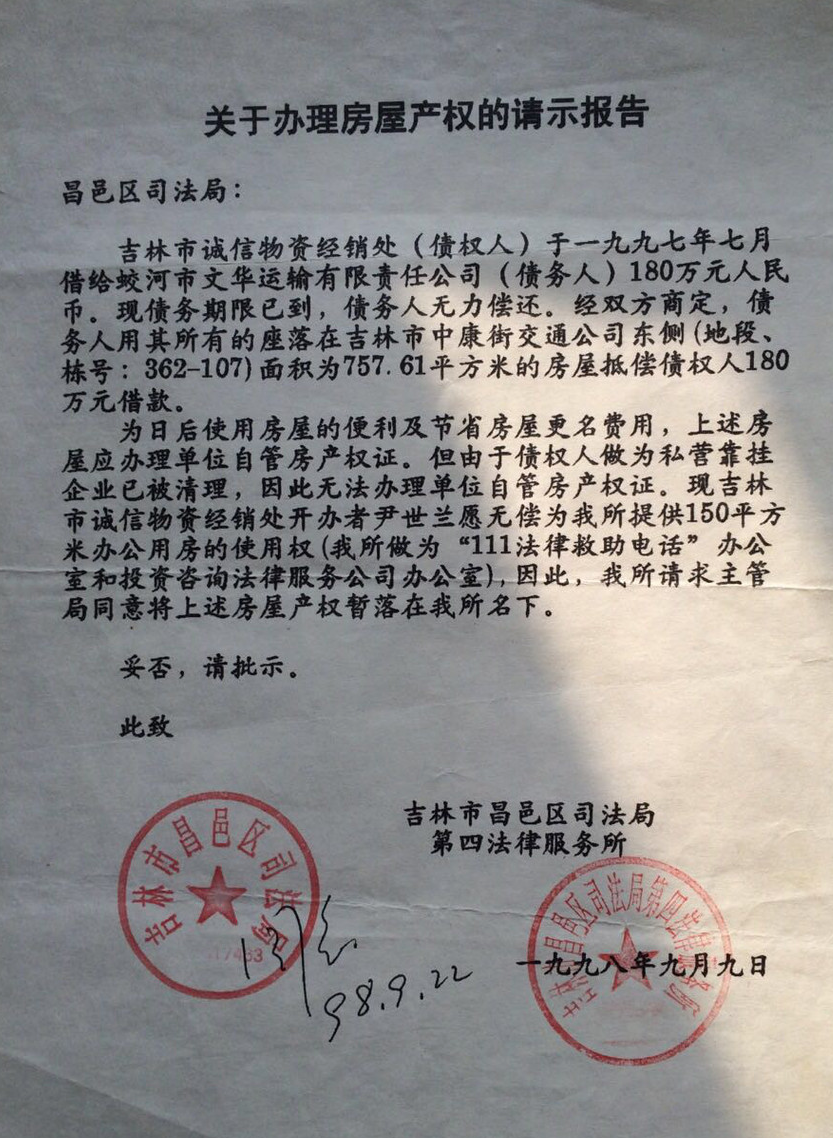 关于办理房屋产权的请示报告
昌邑区司法局：
吉林市诚信物资经销处（债权人）于一九九七年七月
借给蛟河市文华运输有限责任公司（债务人）180万元人民
币。现债务期限已到，债务人无力偿还。经双方商定，债
务人用其所有的座落在吉林市中康街交通公司东侧(地段、
栋号：362-107)面积为757.61平方米的房屋抵偿债权人180
万元借款。
为日后使用房屋的便利及节省房屋更名费用，上述房
屋应办理单位自管房产权证。但由于债权人做为私营靠挂
企业已被清理，因此无法办理单位自管房产权证。现吉林
市诚信物资经销处开办者尹世兰愿无偿为我所提供150平方
米办公用房的使用权(我所做为“111法律救助电话”办公
室和投资咨询法律服务公司办公室),因此，我所请求主管
局同意将上述房屋产权暂落在我所名下。
妥否，请批示。
此致
吉林市昌邑区司法局
第四法律服务所
一九九八年九月九日
吉林市昌邑区司法局
同意
98.9.22
吉林市昌邑区司法局第四法律服务所